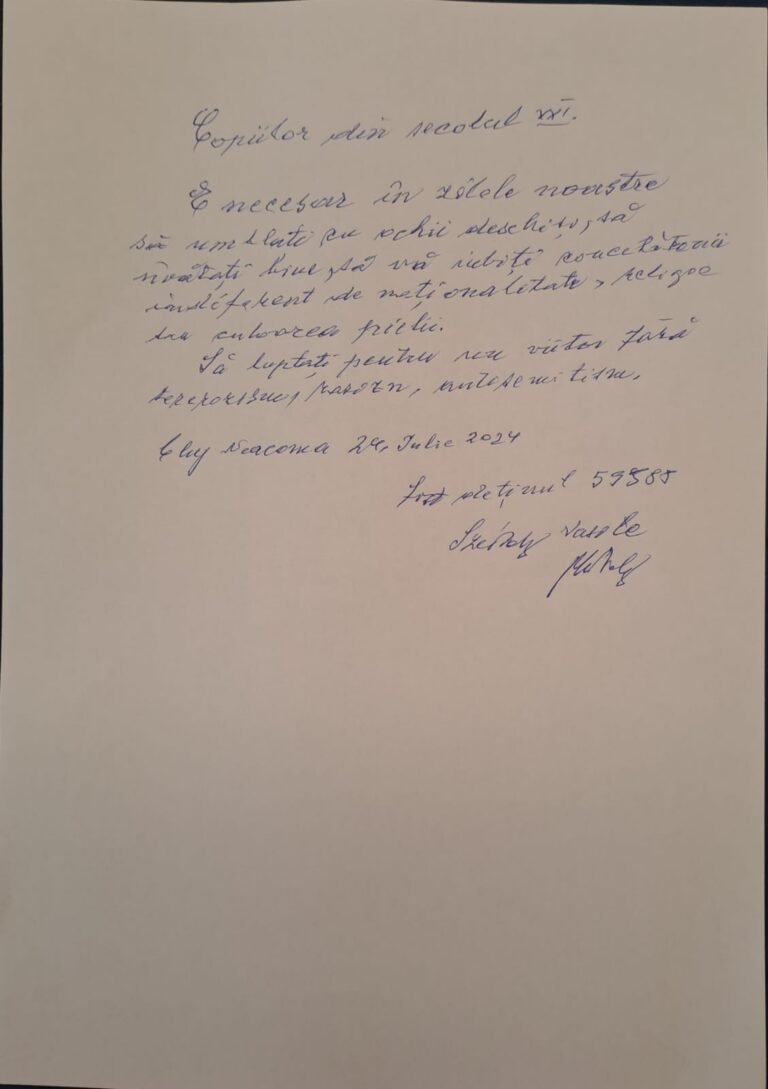 Copiilor din secolul XXI.
E necesar în zilele noastre
să umblati cu ochii deschiși, să
învățați bine, să vă iubiți concetățenii
indiferent de naționalitate, religie
sau culoarea pielii.
Să luptați pentru un viitor fără
terrorism, rasizm, antisemitism.
Cluj Napoca 29, Iulie 2024
Fost deținul 59588
Vasile